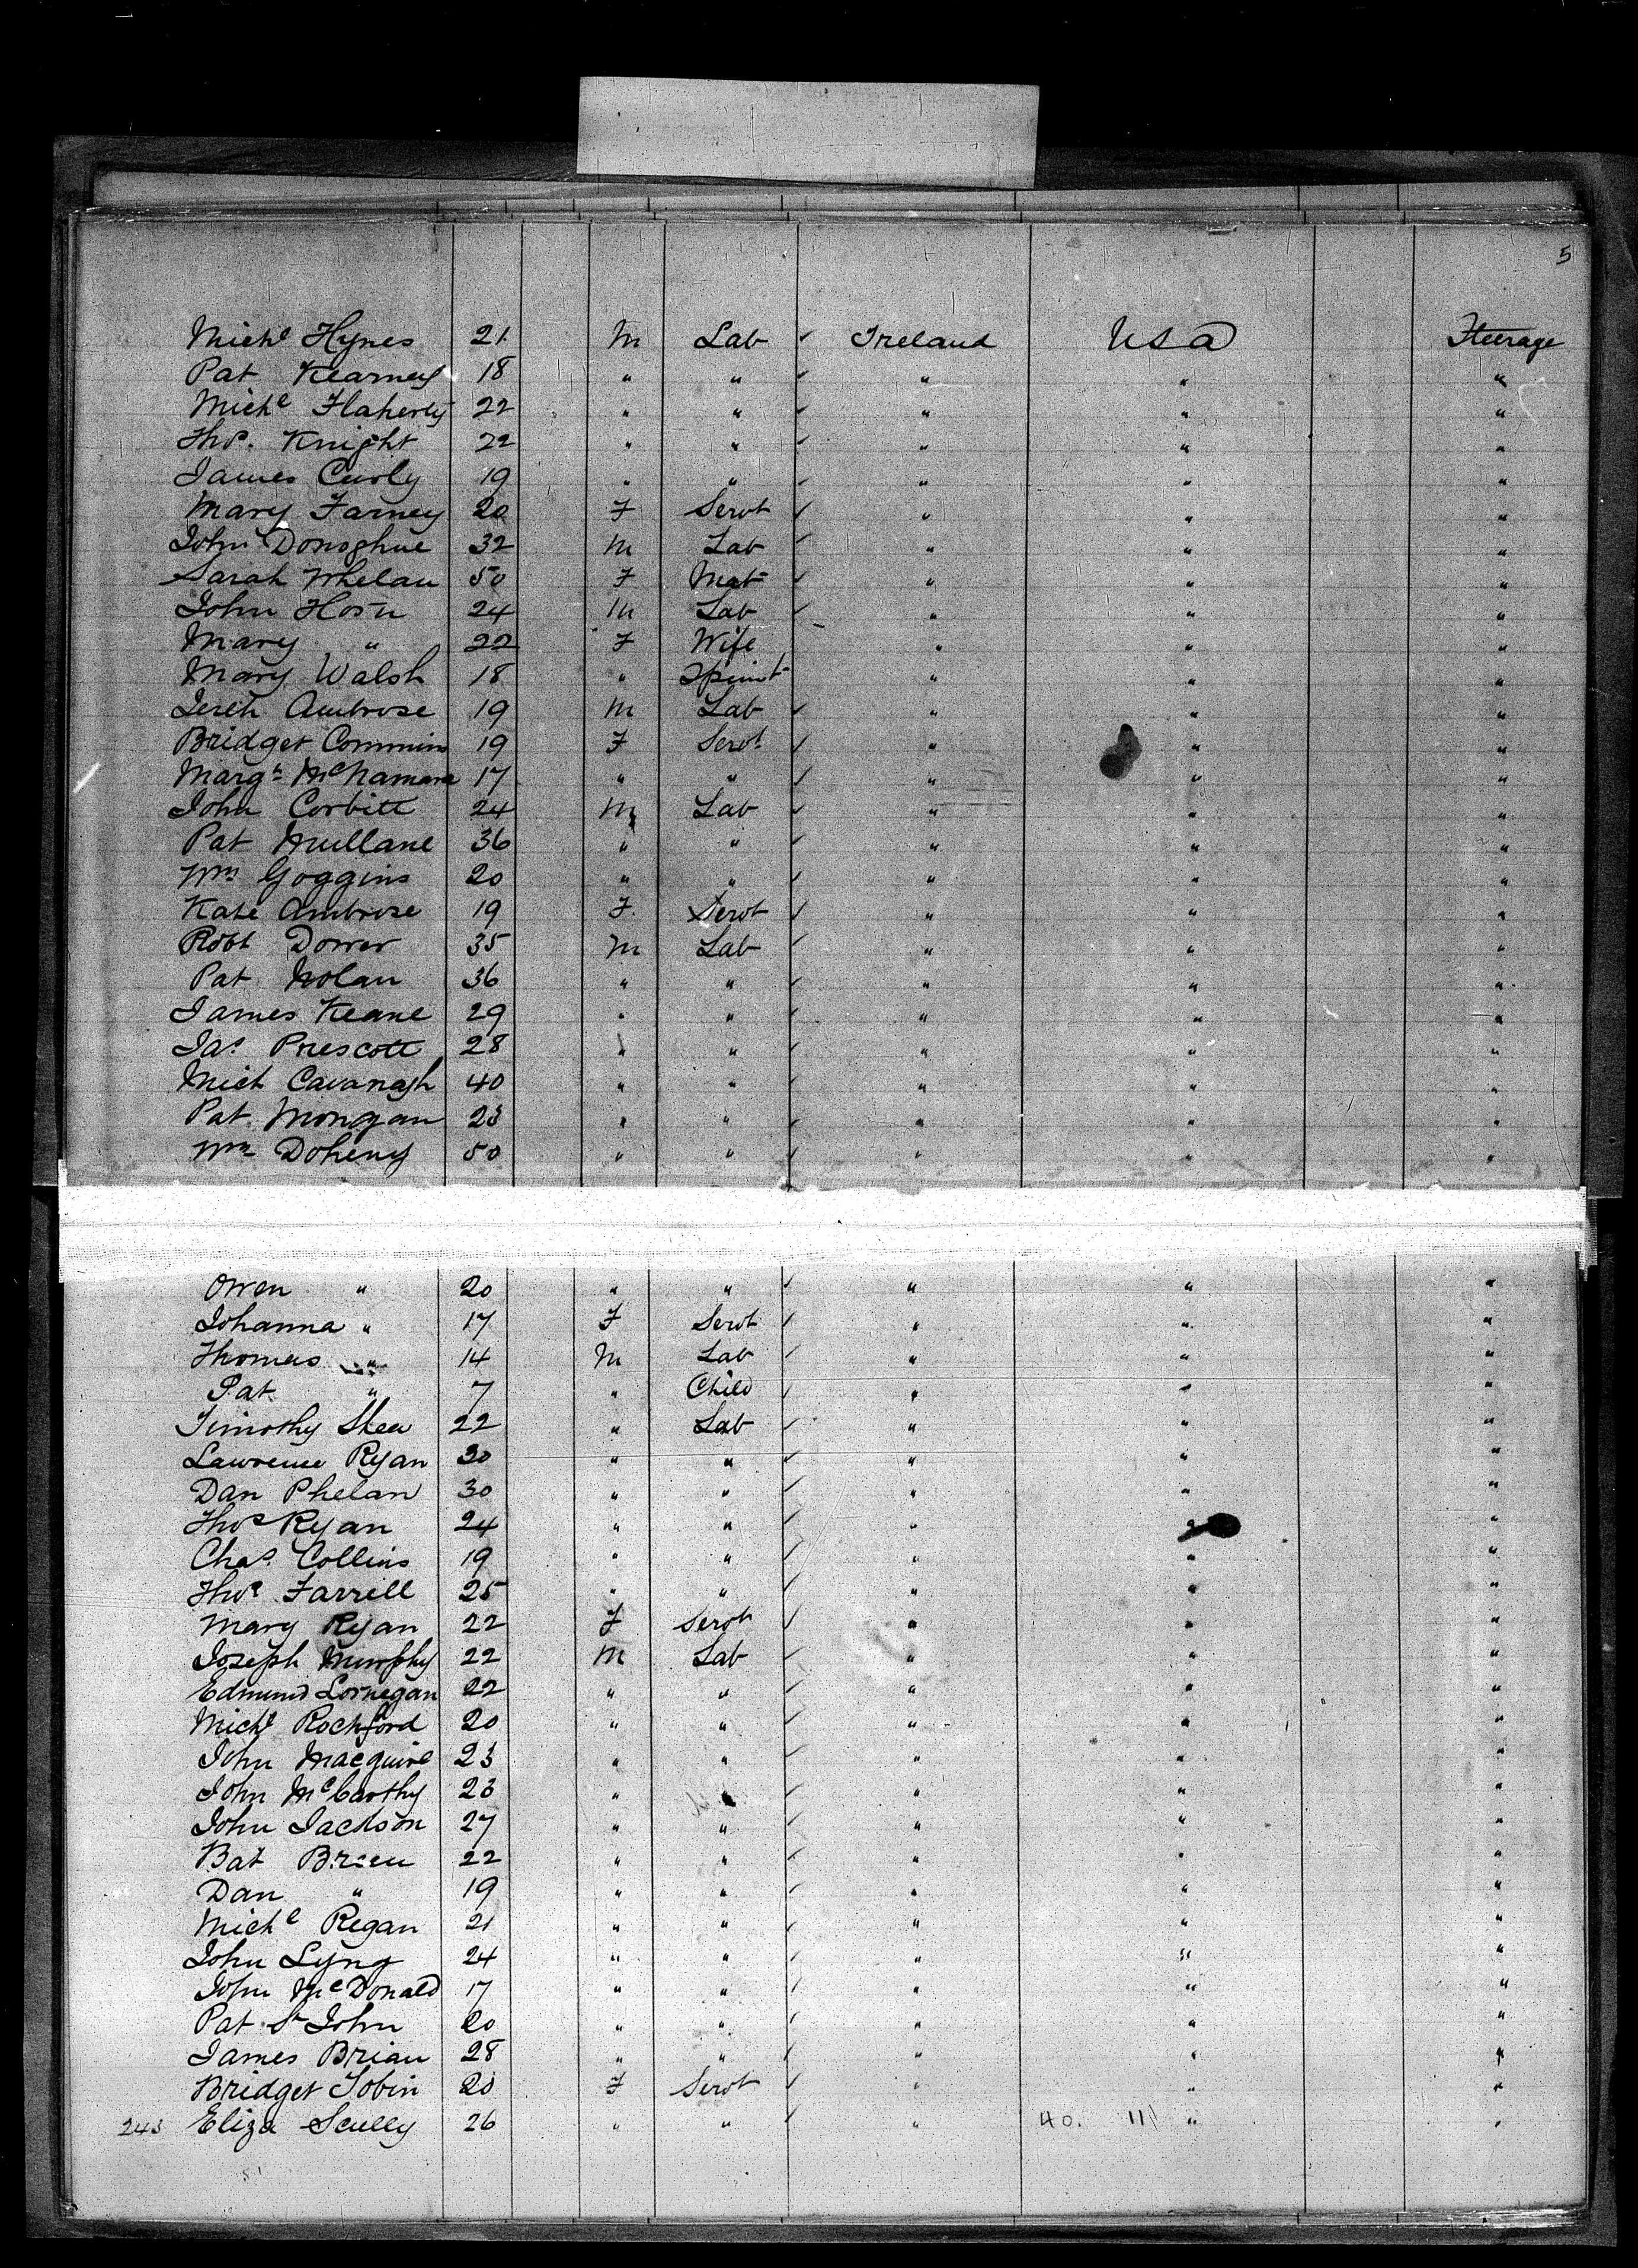 5
Mich<sup>l</sup> Hynes 21 M Lab ✓ Ireland USA Steerage
Pat Kearney 18 " " ✓ " " "
Mich<sup>l</sup> Flaherty 22 " " ✓ " " "
Tho<sup>s</sup>. Knight 22 " " ✓ " " "
James Curly 19 " " ✓ " " "
Mary Farney 20 F Servt ✓ " " "
John Donoghue 32 M Lab ✓ " " "
Sarah Whelan 50 F Mat ✓ " " "
John Horn 24 M Lab ✓ " " "
Mary " 22 F Wife " " "
Mary Walsh 18 " Spinst " " "
Jereh Ambrose 19 M Lab ✓ " " "
Bridget Commins 19 F Servt ✓ " " "
Marg<sup>t</sup> McNamara 17 " " ✓ " " "
John Corbitt 24 M Lab ✓ " " "
Pat Mullane 36 " " ✓ " " "
Wm Goggins 20 " " ✓ " " "
Kate Ambrose 19 F. Servt ✓ " " "
Robt Dower 35 M Lab ✓ " " "
Pat Nolan 36 " " ✓ " " "
James Keane 29 " " ✓ " " "
Ja<sup>s</sup> Prescott 28 " " ✓ " " "
Mich Cavanagh 40 " " ✓ " " "
Pat Mongan 23 " " ✓ " " "
Wm Doheny 50 " " ✓ " " "
Owen " 20 " " ✓ " " "
Johanna " 17 F Servt ✓ " " "
Thomas " 14 M Lab ✓ " " "
Pat " 7 " Child ✓ " " "
Timothy Shea 22 " Lab ✓ " " "
Lawrence Ryan 30 " " ✓ " " "
Dan Phelan 30 " " ✓ " " "
Tho<sup>s</sup> Ryan 24 " " ✓ " " "
Cha<sup>s</sup>. Collins 19 " " ✓ " " "
Tho<sup>s</sup> Farrell 25 " " ✓ " " "
Mary Ryan 22 F Servt ✓ " " "
Joseph Murphy 22 M Lab ✓ " " "
Edmund Lornegan 22 " " ✓ " " "
Mich<sup>l</sup> Rochford 20 " " ✓ " " "
John Macguire 23 " " ✓ " " "
John McCarthy 23 " " ✓ " " "
John Jackson 27 " " ✓ " " "
Bat Brien 22 " " ✓ " " "
Dan " 19 " " ✓ " " "
Mich<sup>l</sup> Regan 21 " " ✓ " " "
John Lyng 24 " " ✓ " " "
John McDonald 17 " " ✓ " " "
Pat St John 20 " " ✓ " " "
James Brian 28 " " ✓ " " "
Bridget Tobin 20 F Servt ✓ " " "
243 Eliza Scully 26 " " ✓ " 40. 11 " "